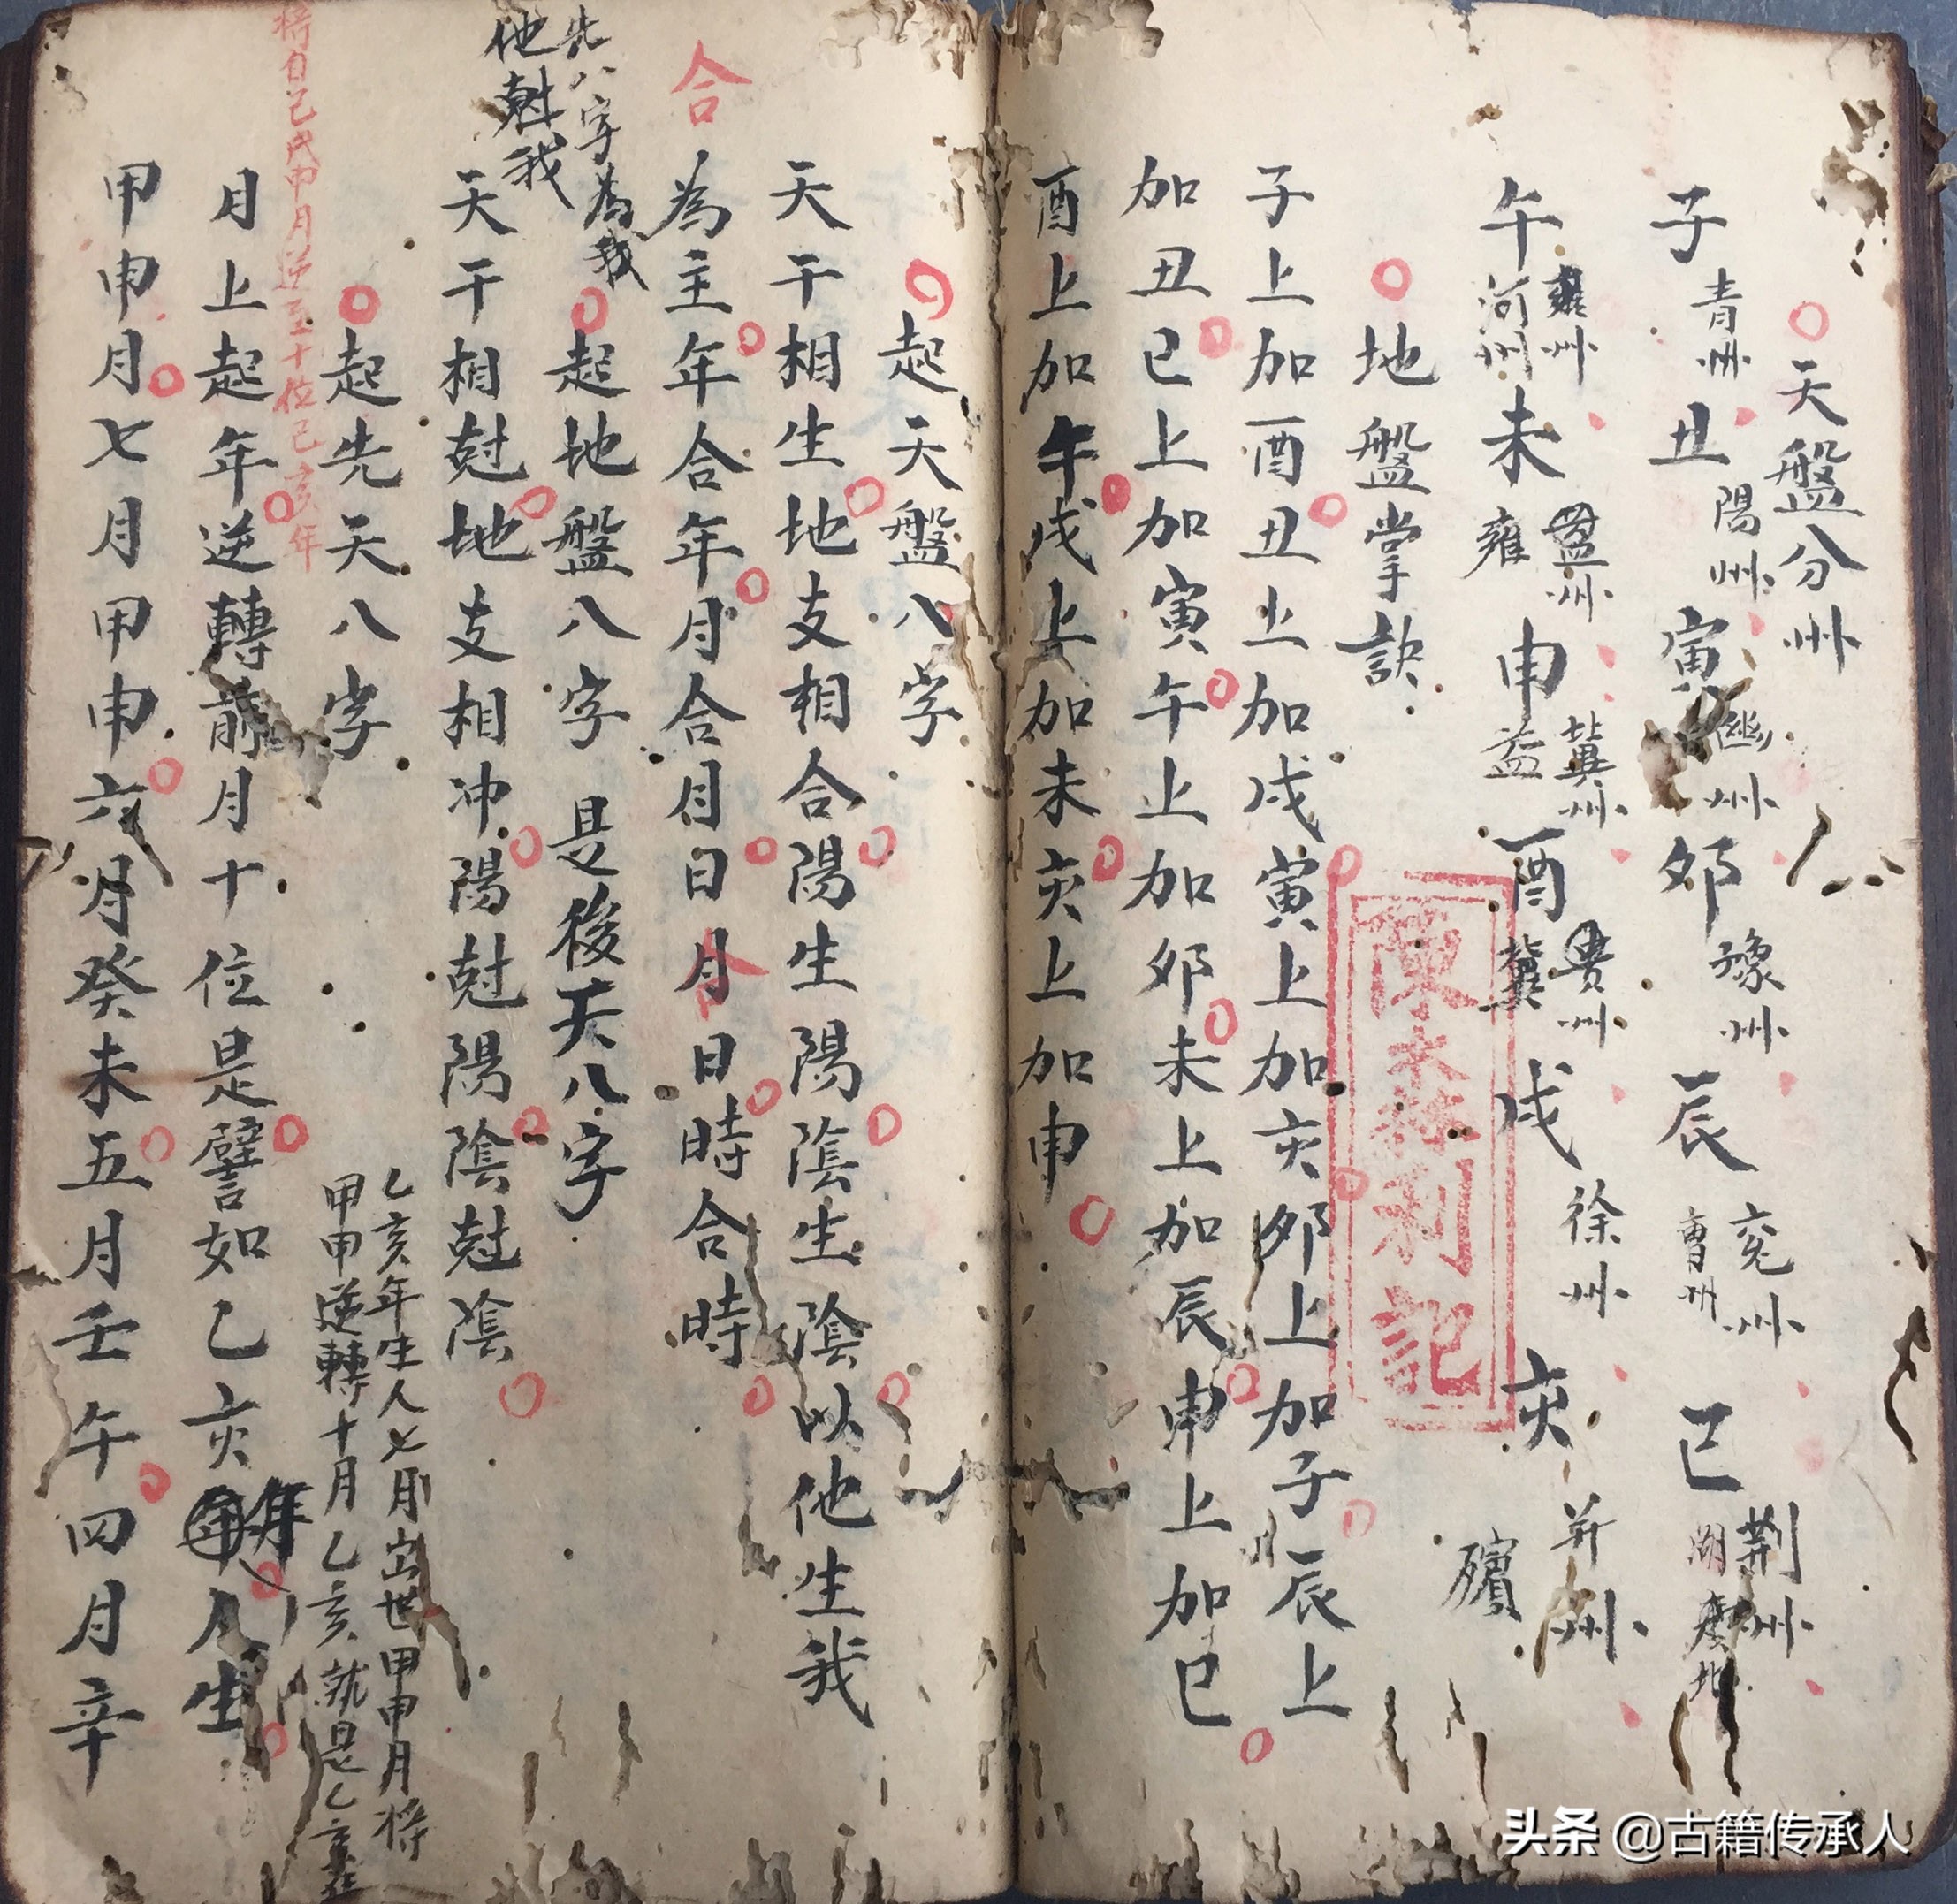 天盤分州
子青州丑陽州寅幽州卯豫州辰兗州曹州巳荆州湖廣北
午雍州河州未盈州雍申冀州益酉貴州冀戌徐州亥并州殯
地盤掌訣
子上加酉丑上加戌寅上加亥卯上加子辰上
加丑巳上加寅午上加卯未上加辰申上加巳
酉上加午戌上加未亥上加申
記
起天盤八字
天干相生地支相合陽生陽陰生陰以他生我
合
為主年合年月合月日月日時合時
合
起地盤八字是後天八字
先八字為我
他尅我
天干相尅地支相冲陽尅陽陰尅陰
起先天八字
乙亥年生人七月出世甲申月将
甲申逆轉十月乙亥就是乙亥
将自己戌申月逆至十位己亥年
月上起年逆轉前月十位是譬如乙亥年人生
甲申月七月甲申六月癸未五月壬午四月辛
头条 @古籍传承人